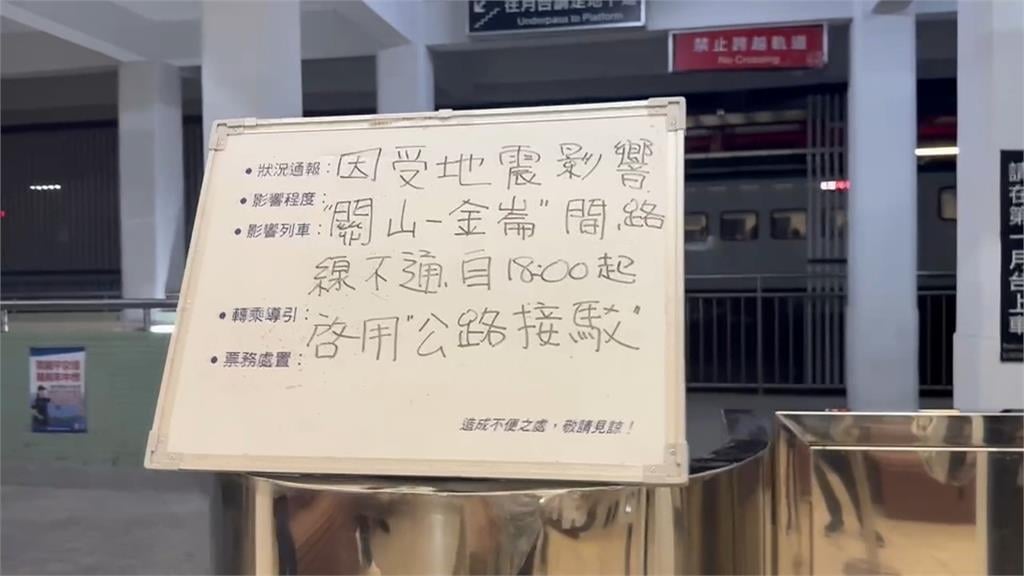 在月台請走地下道
Underpass to Platform
禁止跨越軌道
No Crossing
• 狀況通報：因受地震影響
• 影響程度：
• 影響列車："關山-金崙"間,路
線不通,自18:00起
• 轉乘導引：啓用"公路接駁"
• 票務處置：
造成不便之處，敬請見諒！
請在第一月台上車